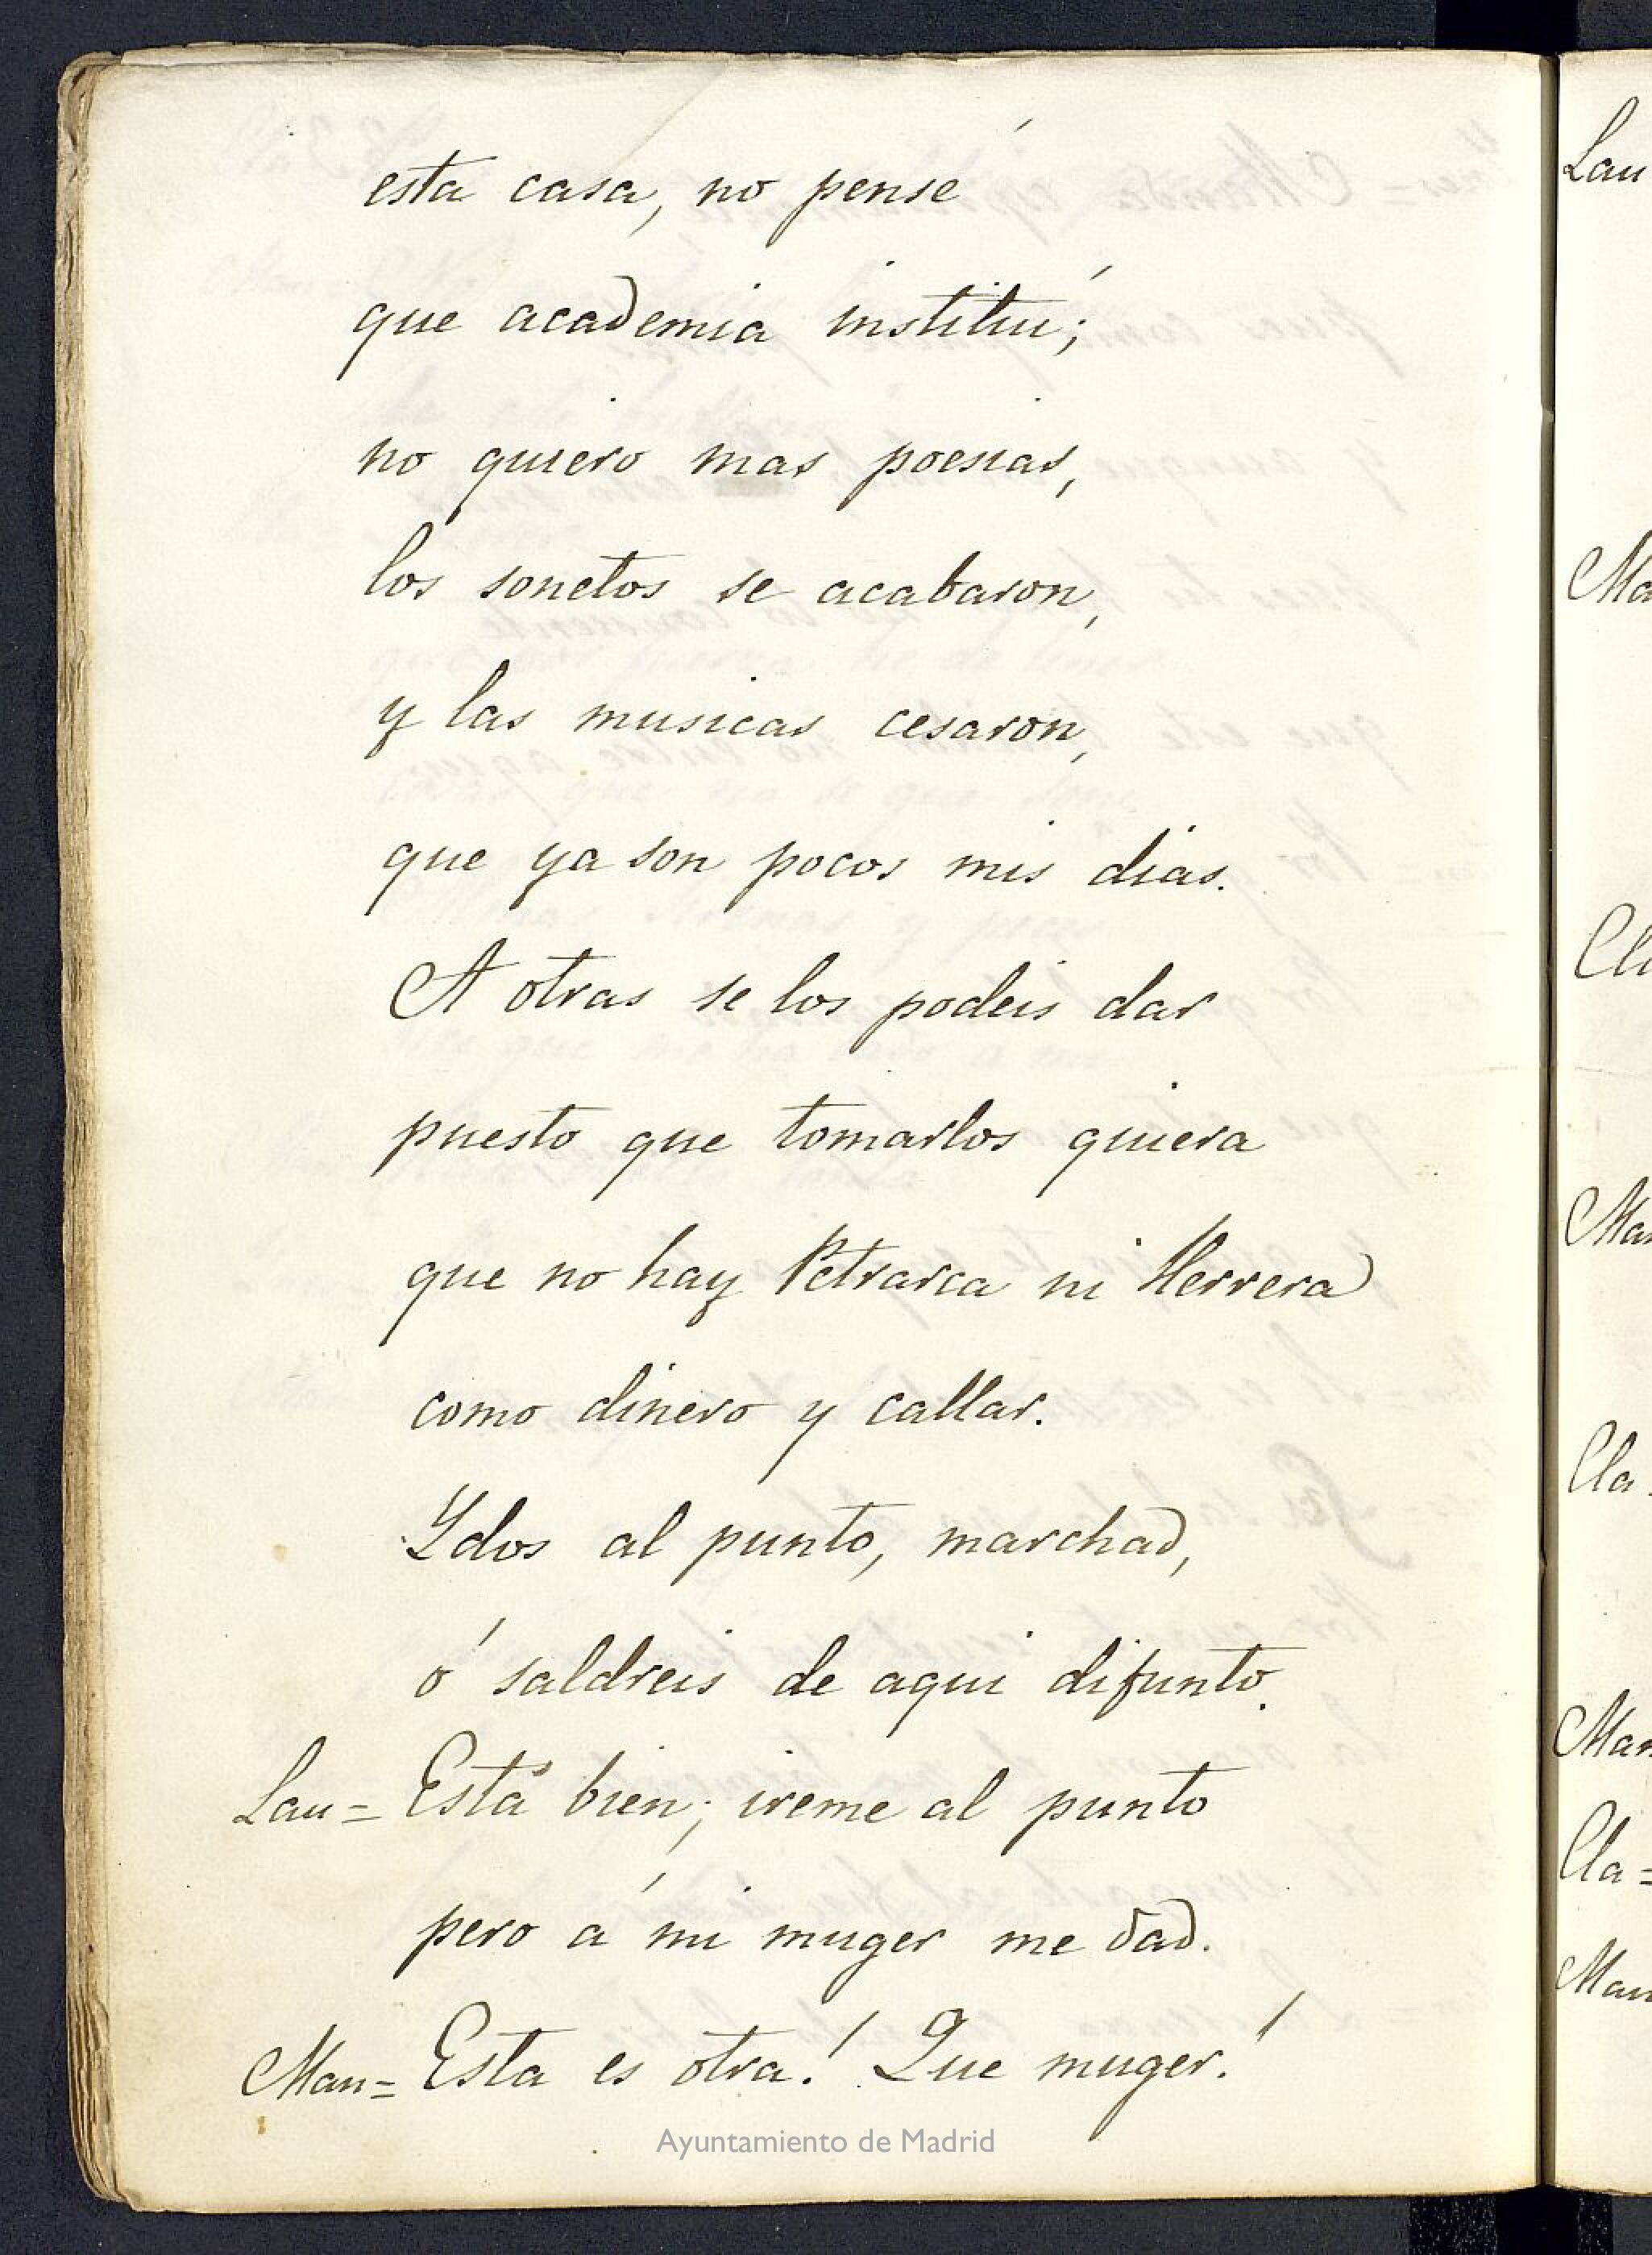 esta casa, no pensé
que academia instituí;
no quiero mas poesias,
los sonetos se acabaron,
y las musicas cesaron,
que ya son pocos mis dias.
A otras se los podeis dar
puesto que tomarlos quiera
que no hay Petrarca ni Herrera
como dinero y callar.
Ydos al punto, marchad,
ó saldreis de aqui difunto.
Lau= Está bien; ireme al punto
pero á mi muger me dad.
Man= Esta es otra! Que muger!
Ayuntamiento de Madrid
Lau
Ma
Cla
Man
Cla
Man
Cla=
Man